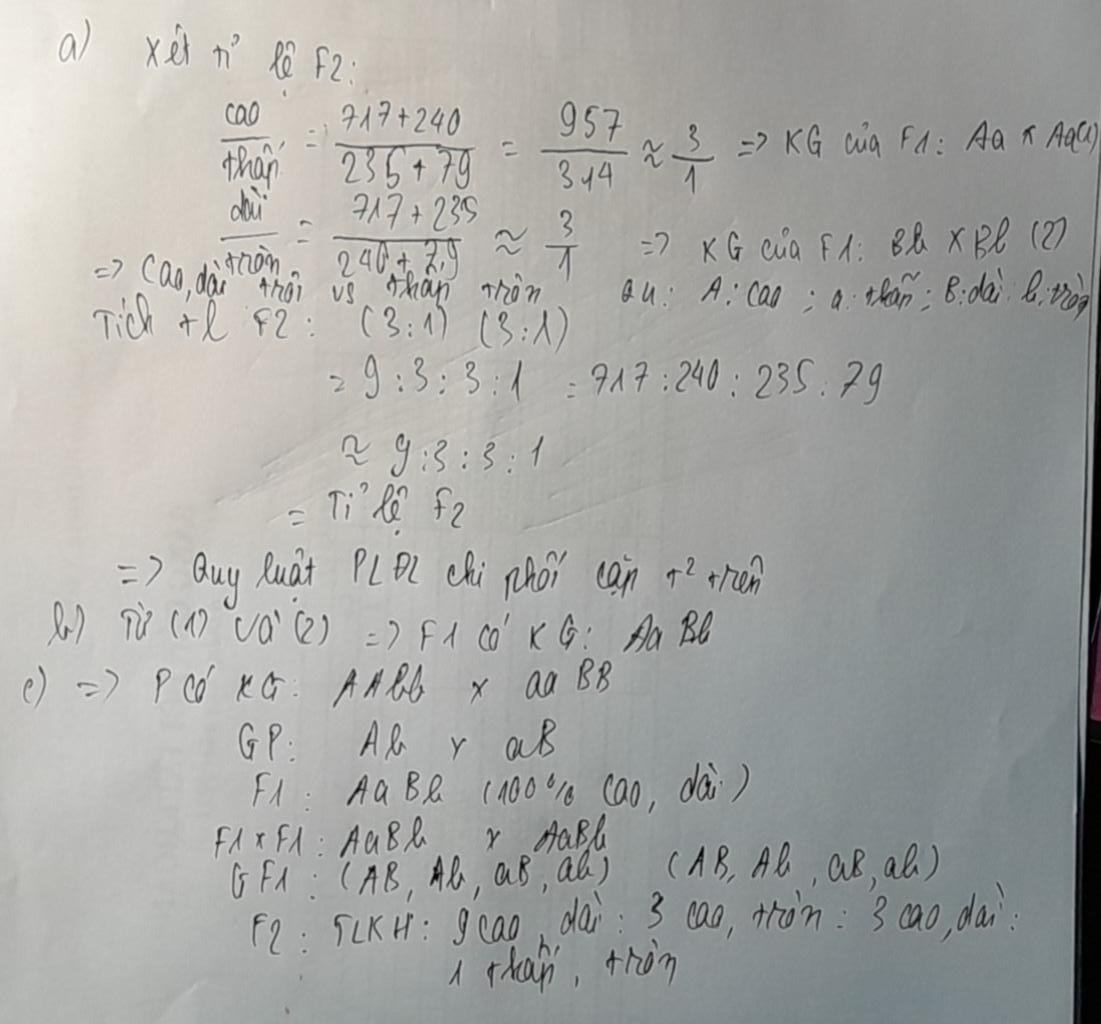 a) Xét tỉ lệ F2:
cao/thấp = 717+240/235+79 = 957/314 ≈ 3/1 => KG của F1: Aa x Aa(1)
dài/tròn = 717+235/240+79 ≈ 3/1 => KG của F1: Bb x Bb (2)
=> Cao, dài trội vs thấp tròn QU: A: cao ; a: thấp ; B: dài. b: tròn
Tích tl F2: (3:1) (3:1)
= 9:3:3:1 = 717:240:235:79
≈ 9:3:3:1
= Tỉ lệ F2
=> Quy luật PLĐL chi phối cặp t² trên
b) Từ (1) và (2) => F1 có KG: AaBb
c) => P có KG: AAbb x aaBB
GP: Ab x aB
F1: AaBb (100% cao, dài)
F1 x F1: AaBb x AaBb
GF1: (AB, Ab, aB, ab) (AB, Ab, aB, ab)
F2: TLKH: 9 cao, dài: 3 cao, tròn: 3 cao, dài:
1 thấp, tròn